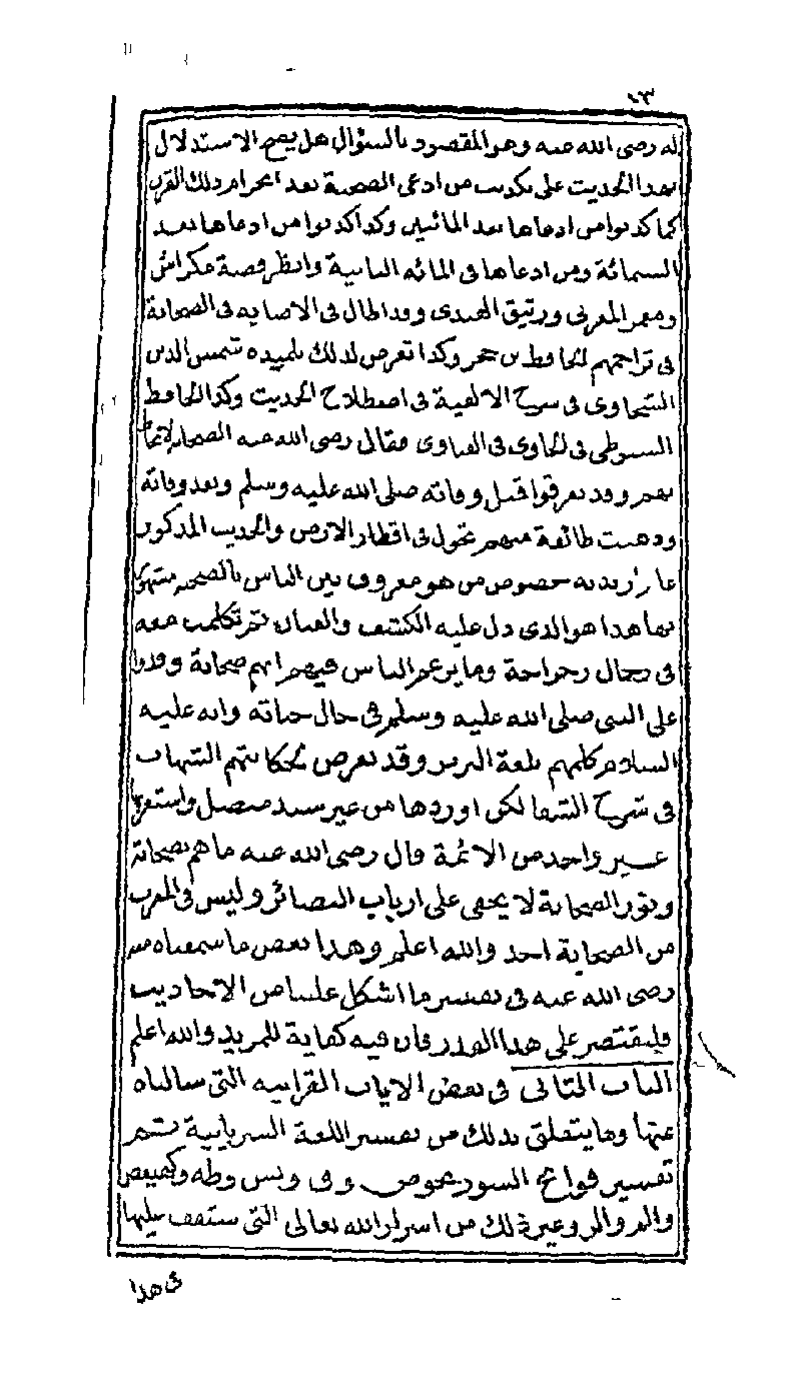 ٤٣
له رضى الله عنه وهو المقصود بالسؤال هل يصح الاستدلال
بهذا الحديث على تكذيب من ادعى الصحبة بعد انخرام ذلك القرن
كما كذبوا من ادعاها بعد المائتين وكذا كذبوا من ادعاها بعد
الستمائة ومن ادعاها فى المائه الثانية وانظر قصة عكراش
ومعمر المغربى ورتيق الهندى وقد اطال فى الاصابه فى الصحابة
فى تراجمهم الحافظ بن حجر وكذا تعرض لذلك تلميذه شمس الدين
السخاوى فى شرح الالفية فى اصطلاح الحديث وكذا الحافظ
السيوطى فى الحاوى فى الفتاوى فقال رضى الله عنه الصحابة لا
بهم وقد تفرقوا قبل وفاته صلى الله عليه وسلم وبعد وفاته
وذهبت طائفة منهم تجول فى اقطار الارض والحديث المذكور
عام اريد به خصوص من هو معروف بين الناس بالصحبة مشهور
بها هذا هو الذى دل عليه الكشف والعيان ثم تكلمت معه
فى رجال رجراجة وما يزعم الناس فيهم انهم صحابة وفدوا
على النبى صلى الله عليه وسلم فى حال حياته وانه عليه
السلام كلمهم بلغة البربر وقد تعرض لحكايتهم الشهاب
فى شرح الشفا لكن اوردها من غير سند متصل واستغربها
غير واحد من الائمة قال رضى الله عنه ما هم بصحابة
ونور الصحابة لا يخفى على ارباب البصائر وليس فى المغرب
من الصحابة احد والله اعلم وهذا بعض ما سمعناه منه
رضى الله عنه فى تفسير ما اشكل علينا من الاحاديث
وليقتصر على هذا القدر فان فيه كفاية للمريد والله اعلم
الباب الثانى فى بعض الايات القرانيه التى سالناه
عنها وما يتعلق بذلك من تفسير اللغة السريانية ثم
تفسير فواتح السور نحو ص وق ويس وطه وكهيعص
والم والر وغير ذلك من اسرار الله تعالى التى ستقف عليها
فى هذا